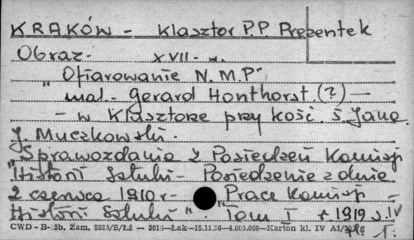 KRAKÓW - Klasztor P.P. Prezentek
Obraz - XVII - w.
"Ofiarowanie N.M.P."
mal. - Gerard Honthorst (?) -
- w Klasztorze przy kość. ś. Jana.
J. Muczkowski.
"Sprawozdania z Posiedzeń Komisji
Historii Sztuki - Posiedzenie z dnia
2 czerwca 1910 r. Prace Komisji -
Historii Sztuki". Tom I r. 1919 s. IV
CWD - B-5b. Zam. 5323/S/Łź - 3010-Łak-15.11.56-4.000.000-Karton kl. IV A1/